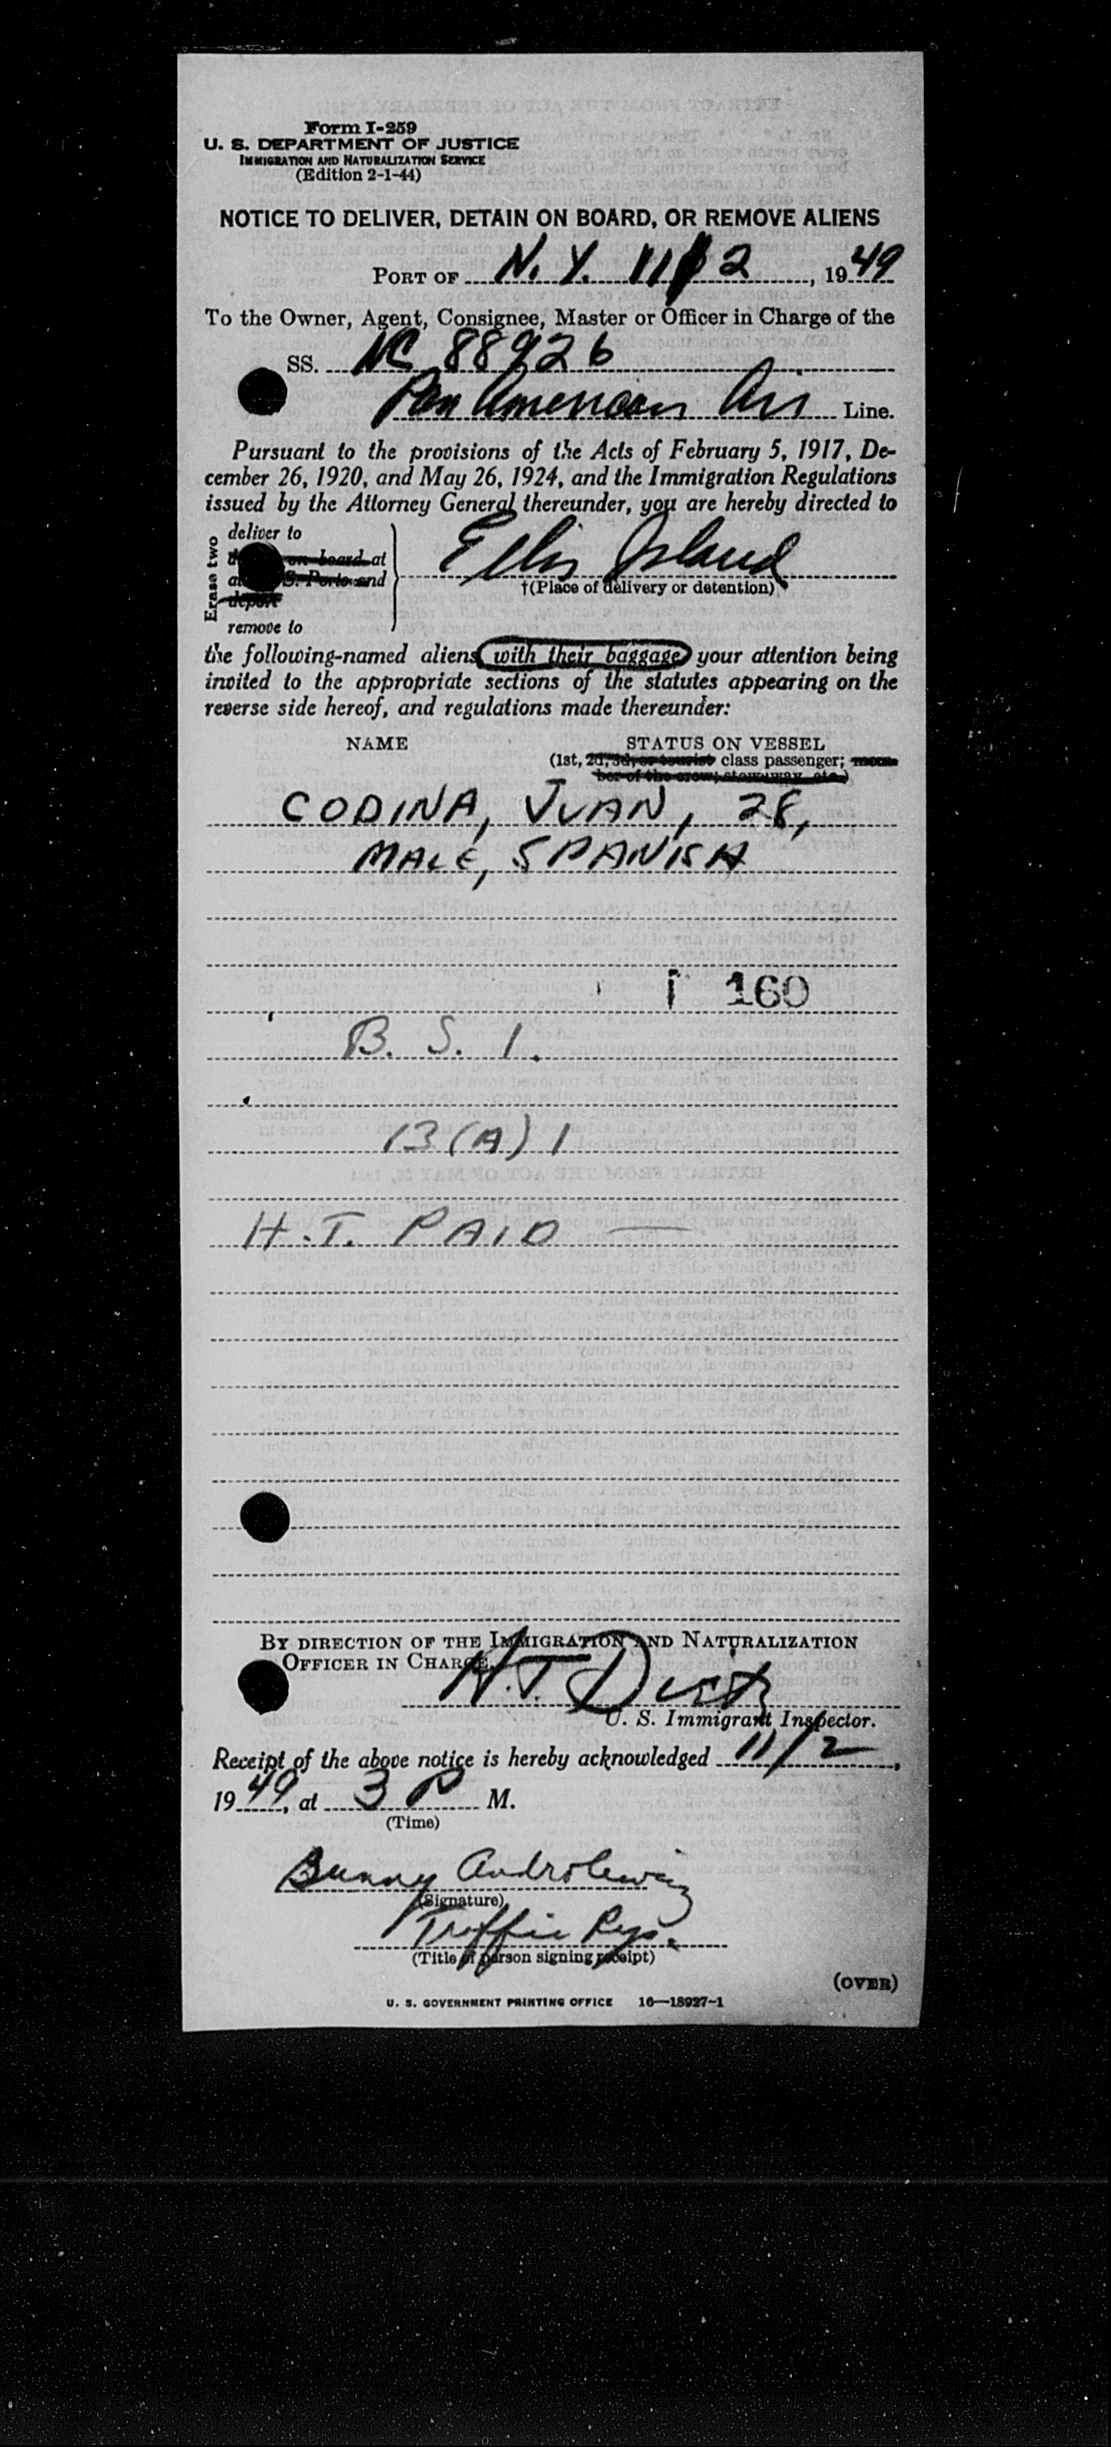 Form I-259
U. S. DEPARTMENT OF JUSTICE
IMMIGRATION AND NATURALIZATION SERVICE
(Edition 2-1-44)
NOTICE TO DELIVER, DETAIN ON BOARD, OR REMOVE ALIENS
PORT OF N. Y. 11/2, 1949
To the Owner, Agent, Consignee, Master or Officer in Charge of the
SS. NC 88926
Pan American Air Line.
Pursuant to the provisions of the Acts of February 5, 1917, De-
cember 26, 1920, and May 26, 1924, and the Immigration Regulations
issued by the Attorney General thereunder, you are hereby directed to
Erase two
deliver to
on board at
S. Ports and
deport
remove to
Ellis Island
†(Place of delivery or detention)
the following-named aliens with their baggage your attention being
invited to the appropriate sections of the statutes appearing on the
reverse side hereof, and regulations made thereunder:
NAME STATUS ON VESSEL
(1st, 2d, 3d, or tourist class passenger; mem-
ber of the crew; stowaway, etc.)
CODINA, JUAN, 28,
MALE, SPANISH
160
B. S. I.
13(A) 1
H.T. PAID —
BY DIRECTION OF THE IMMIGRATION AND NATURALIZATION
OFFICER IN CHARGE
H.T.
U. S. Immigrant Inspector.
Receipt of the above notice is hereby acknowledged 11/2,
1949, at 3 P M.
(Time)
Bunny
(Signature)
Traffic Rep.
(Title of person signing receipt)
(OVER)
U. S. GOVERNMENT PRINTING OFFICE 16—18927-1